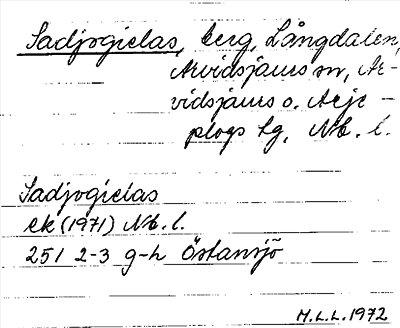 Sadjogielas, berg, Långdalen,
Arvidsjaurs sn, Ar-
vidsjaurs o. Arje-
plogs tg, Nb. l.
Sadjogielas
ek (1971) Nb. l.
251 2-3 g-h Östansjö
M.L.L. 1972